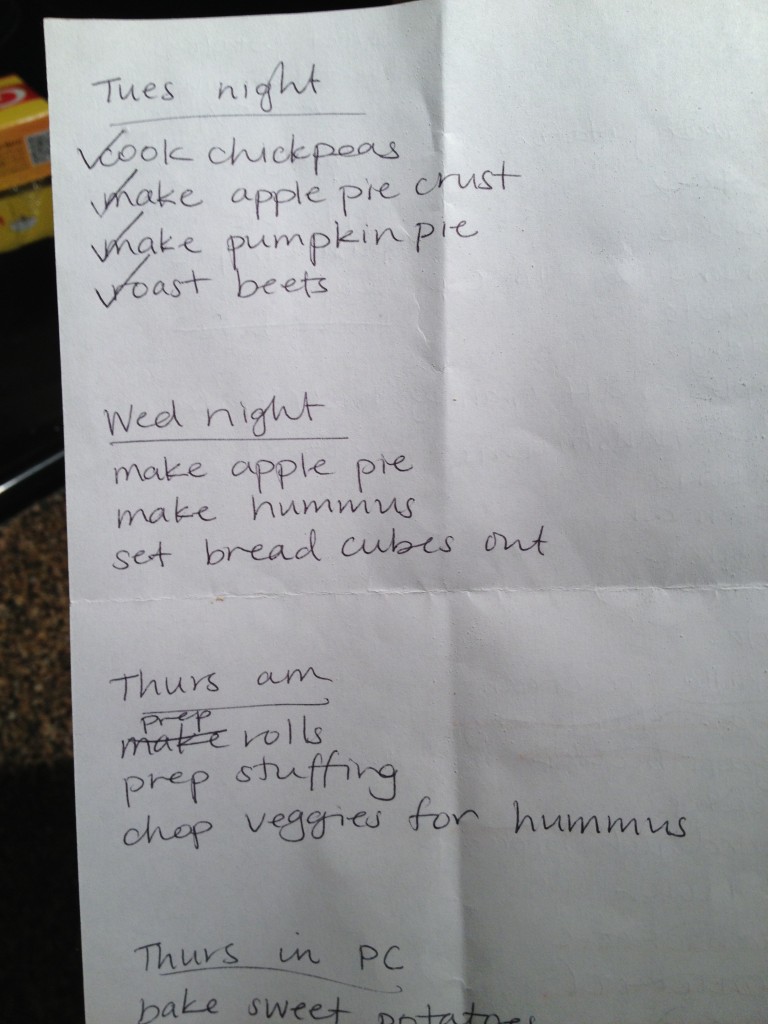 Tues night
cook chickpeas
make apple pie crust
make pumpkin pie
roast beets
Wed night
make apple pie
make hummus
set bread cubes out
Thurs am
prep
make rolls
prep stuffing
chop veggies for hummus
Thurs in PC
bake sweet potatoes